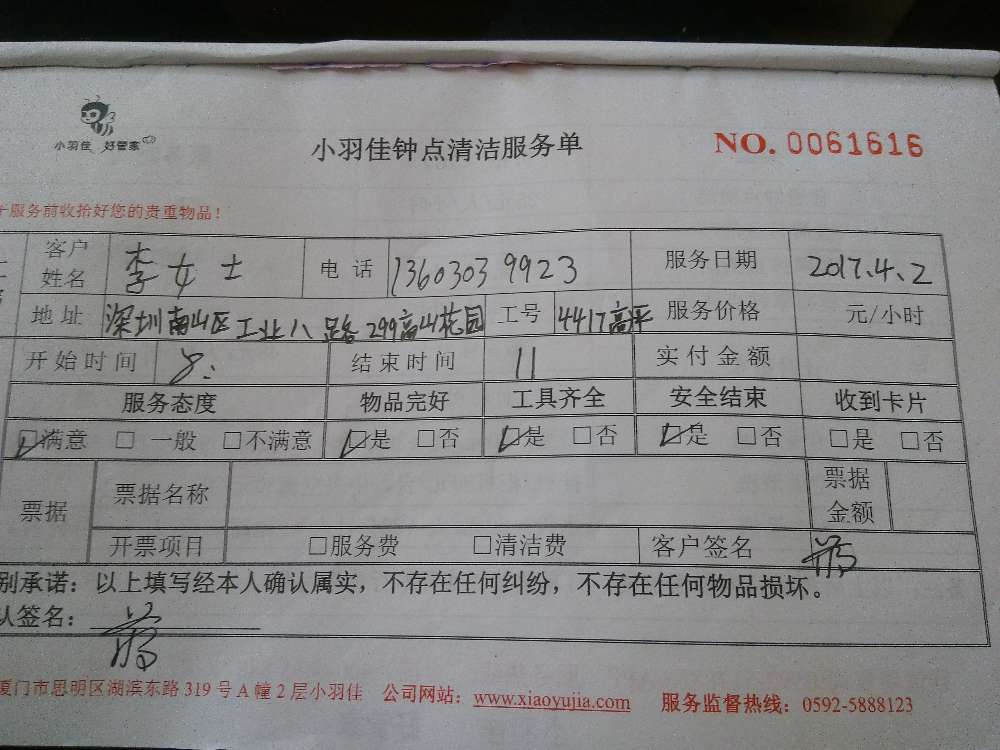 小羽佳 好管家
小羽佳钟点清洁服务单
NO. 0061616
服务前收拾好您的贵重物品！
客户姓名 李女士 电话 13603039923 服务日期 2017.4.2
地址 深圳南山区工业八路299高山花园 工号 4417高平 服务价格 元/小时
开始时间 8: 结束时间 11 实付金额
服务态度 物品完好 工具齐全 安全结束 收到卡片
☑满意 □一般 □不满意 ☑是 □否 ☑是 □否 ☑是 □否 □是 □否
票据 票据名称 票据金额
开票项目 □服务费 □清洁费 客户签名
别承诺：以上填写经本人确认属实，不存在任何纠纷，不存在任何物品损坏。
认签名：
厦门市思明区湖滨东路319号A幢2层小羽佳 公司网站：www.xiaoyujia.com 服务监督热线：0592-5888123